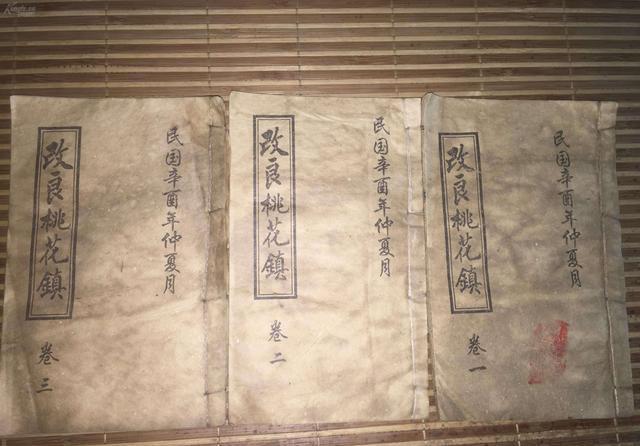 民国辛酉年仲夏月
改良桃花鎮
卷一
民国辛酉年仲夏月
改良桃花鎮
卷二
民国辛酉年仲夏月
改良桃花鎮
卷三